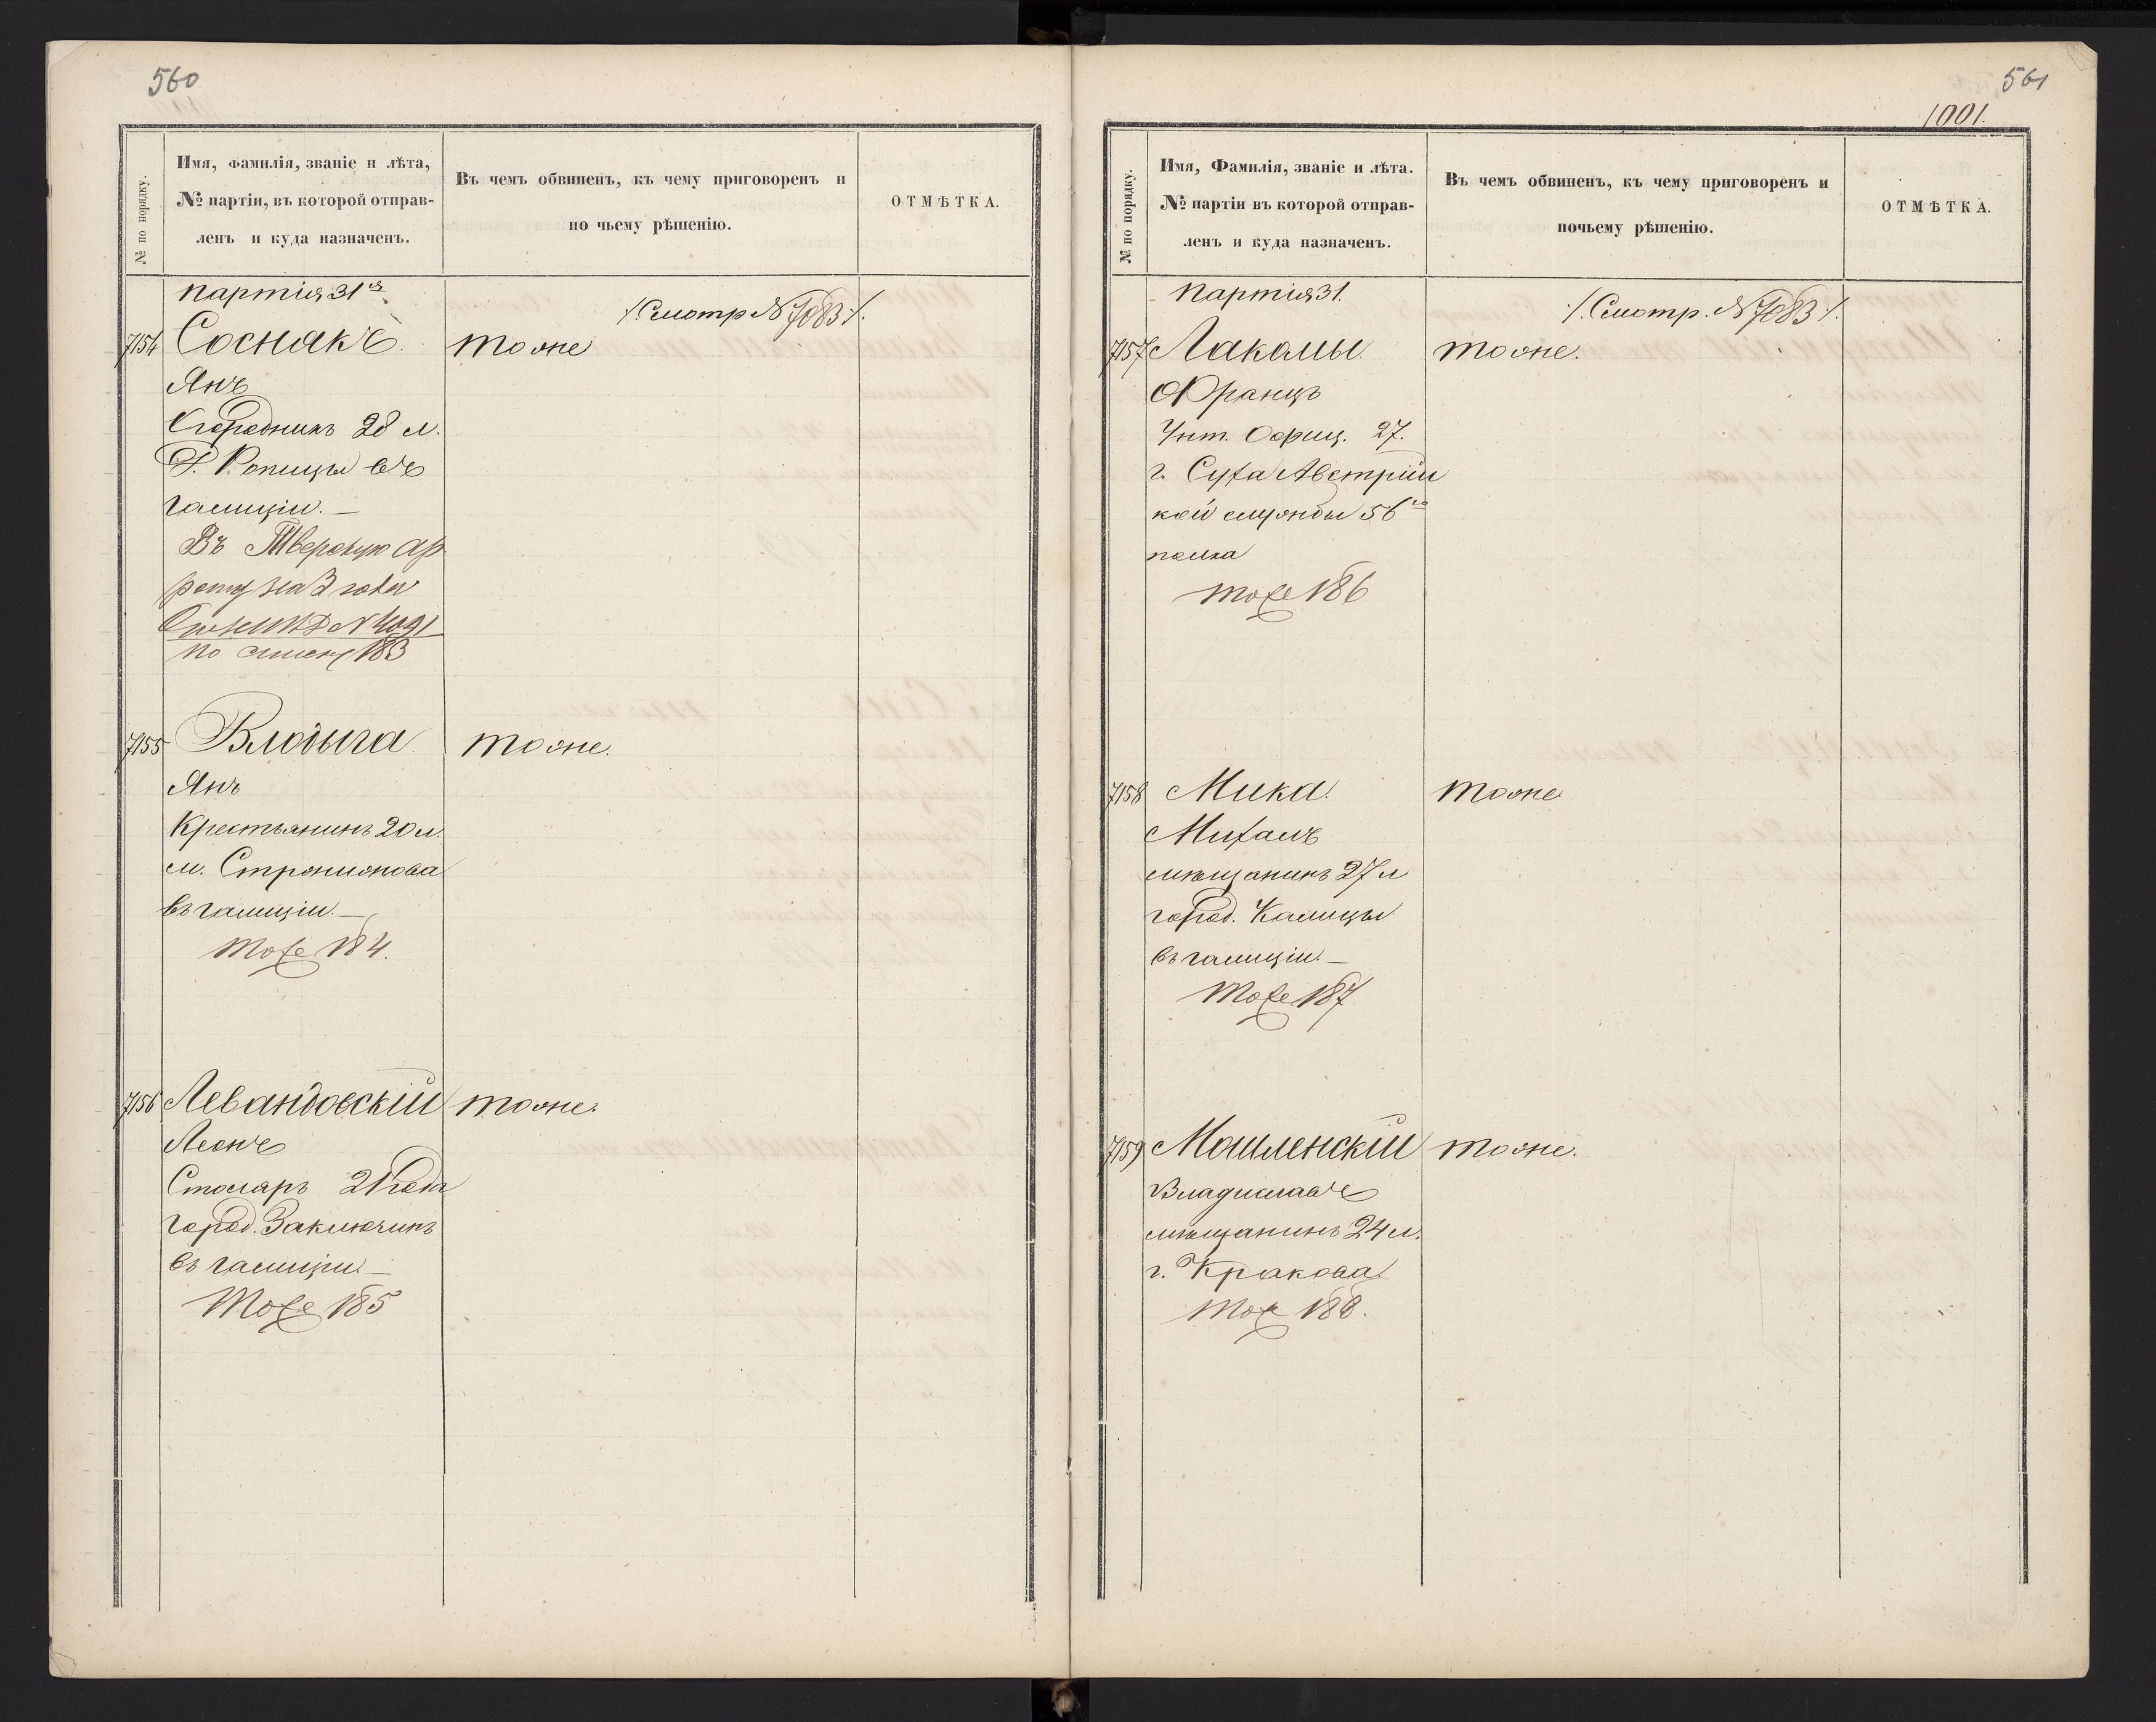 560
№ по порядку.
Имя, фамилія, званіе и лѣта,
№ партіи, въ которой отправ-
ленъ и куда назначенъ.
Въ чемъ обвиненъ, къ чему приговоренъ и
по чьему рѣшенію.
ОТМѢТКА.
партія 31я
/.Смотр № 7083./.
7154 Соснакъ. тоже
Янъ
Огородникъ 28 л.
Г. Ропицы въ
Галиціи. —
Въ Тверскую ар
роту на 3 года
№ 4091
по списку 183
7155 Владыга тоже.
Янъ
Крестьянинъ 20 л.
м.
въ Галиціи. —
Тоже 184.
7156 Левандовскій тоже.
Леонъ
Столяръ 21 года
Город. Заключинъ
въ Галиціи. —
Тоже 185
561
1001.
№ по порядку.
Имя, Фамилія, званіе и лѣта.
№ партіи въ которой отправ-
ленъ и куда назначенъ.
Въ чемъ обвиненъ, къ чему приговоренъ и
почьему рѣшенію.
ОТМѢТКА.
партія 31.
/.Смотр. № 7083./.
7157 Лакомы. тоже.
Францъ
Унт. Офиц. 27.
г. Суха Австрій
кой службы 56го
полка
тоже 186
7158 Мика. тоже
Михалъ
мѣщанинъ 27 л
город. Калицы
въ Галиціи. —
Тоже 187
7159 Машленскій тоже.
Владиславъ
мѣщанинъ 24 л.
г. Кракова.
Тоже 188.